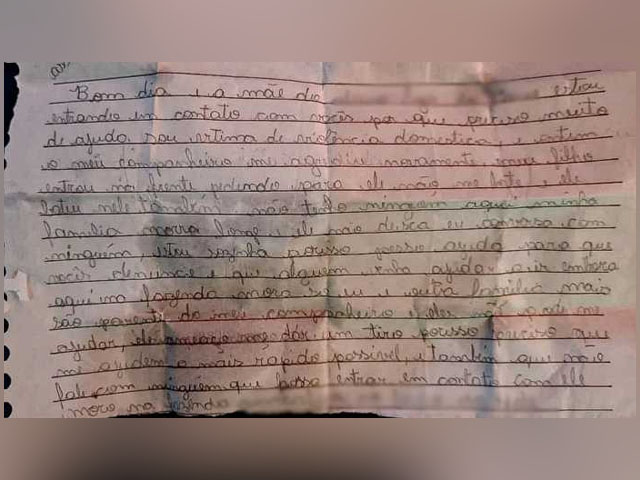 Bom dia e a mãe da estou
entrando em contato com vocês por que preciso muito
de ajuda. sou vitima de violência domestica, e ontem
o meu companheiro me agrediu novamente, meu filho
entrou na frente pedindo para ele não me bate e ele
bateu nele também não tenho ninguém aqui minha
familia morra longe e ele não deixa eu conversa com
ninguém, estou sozinha pousso ajuda para que
vocês denuncie e que alguem venha ajudar a ir embora
aqui na fazenda mora só eu e outra familia mais
são parente do meu companheiro e eles não pode me
ajudar, ele ameaço me dar um tiro pousso preciso que
me ajudem o mais rapido possivel, e também que não
fale com ninguém que possa entrar em contato com ele
moro na fazenda